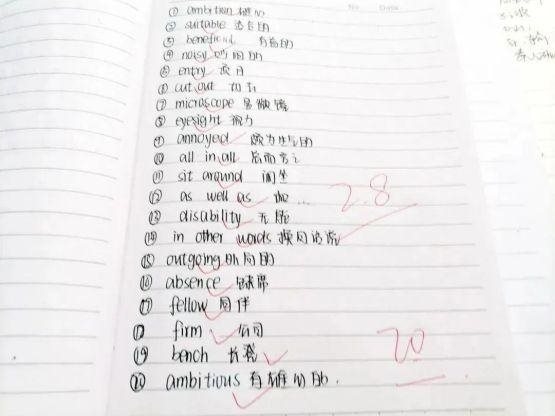 No Date
① ambition 雄心
② suitable 适合的
③ beneficial 有益的
④ noisy 吵闹的
⑤ entry 项目
⑥ cut out 切下
⑦ microscope 显微镜
⑧ eyesight 视力
⑨ annoyed 颇为生气的
⑩ all in all 总而言之
⑪ sit around 闲坐
⑫ as well as 也 ...
⑬ disability 无能
⑭ in other words 换句话说
⑮ outgoing 外向的
⑯ absence 缺席
⑰ fellow 同伴
firm 公司
⑲ bench 长凳
⑳ ambitious 有雄心的.
2.8
20